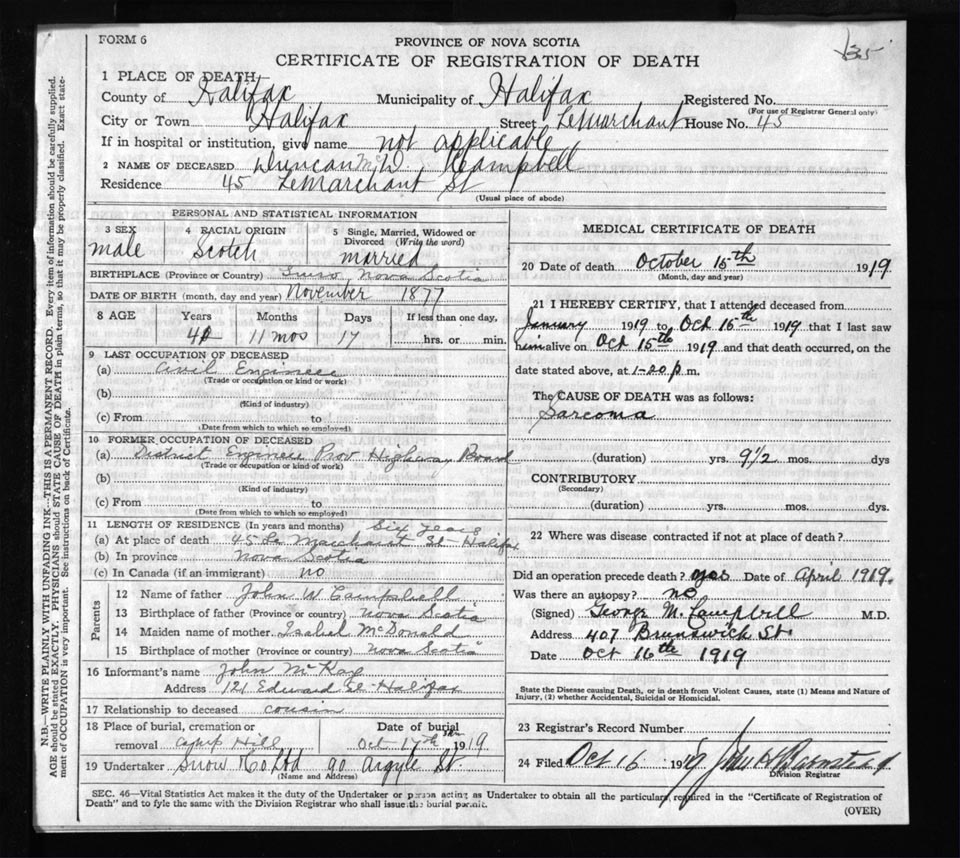 FORM 6
PROVINCE OF NOVA SCOTIA
CERTIFICATE OF REGISTRATION OF DEATH
1 PLACE OF DEATH
County of Halifax Municipality of Halifax Registered No.
(For use of Registrar General only)
City or Town Halifax Street LeMarchant House No. 45
If in hospital or institution, give name not applicable
2 NAME OF DECEASED Duncan McD. Campbell
Residence 45 LeMarchant St
(Usual place of abode)
PERSONAL AND STATISTICAL INFORMATION
3 SEX male
4 RACIAL ORIGIN Scotch
5 Single, Married, Widowed or Divorced (Write the word) married
BIRTHPLACE (Province or Country) Truro Nova Scotia
DATE OF BIRTH (month, day and year) November 1877
8 AGE Years Months Days If less than one day,
11 mos 17 hrs. or min.
9 LAST OCCUPATION OF DECEASED
(a) Civil Engineer
(Trade or occupation or kind or work)
(b)
(Kind of industry)
(c) From to
(Date from which to which so employed)
10 FORMER OCCUPATION OF DECEASED
(a) District Engineer Prov Highway Board
(Trade or occupation or kind of work)
(b)
(Kind of industry)
(c) From to
(Date from which to which so employed)
11 LENGTH OF RESIDENCE (In years and months) Six years
(a) At place of death 45 Le Marchant St Halifax
(b) In province Nova Scotia
(c) In Canada (if an immigrant) no
Parents
12 Name of father John W Campbell
13 Birthplace of father (Province or country) Nova Scotia
14 Maiden name of mother Isabel McDonald
15 Birthplace of mother (Province or country) Nova Scotia
16 Informant's name John McKay
Address 121 Edward St-Halifax
17 Relationship to deceased cousin
18 Place of burial, cremation or removal Camp Hill
Date of burial Oct 17th 1919
19 Undertaker Snow & Co Ltd 90 Argyle St
(Name and Address)
MEDICAL CERTIFICATE OF DEATH
20 Date of death October 15th 1919
(Month, day and year)
21 I HEREBY CERTIFY, that I attended deceased from
January 1919 to Oct 15th 1919 that I last saw
him alive on Oct 15th 1919 and that death occurred, on the
date stated above, at 1-20 p.m.
The CAUSE OF DEATH was as follows:
Sarcoma
(duration) yrs. 9½ mos. dys
CONTRIBUTORY
(Secondary)
(duration) yrs. mos. dys.
22 Where was disease contracted if not at place of death?
Did an operation precede death? yes Date of April 1919.
Was there an autopsy? no
(Signed) George M. Campbell M.D.
Address 407 Brunswick St.
Date Oct 16th 1919
State the Disease causing Death, or in death from Violent Causes, state (1) Means and Nature of
Injury, (2) whether Accidental, Suicidal or Homicidal.
23 Registrar's Record Number
24 Filed Oct 16 1919
Division Registrar
SEC. 46—Vital Statistics Act makes it the duty of the Undertaker or person acting as Undertaker to obtain all the particulars required in the "Certificate of Registration of
Death" and to fyle the same with the Division Registrar who shall issue the burial permit.
(OVER)
N.B.—WRITE PLAINLY WITH UNFADING INK—THIS IS A PERMANENT RECORD. Every item of information should be carefully supplied.
AGE should be stated EXACTLY. PHYSICIANS should STATE CAUSE OF DEATH in plain terms, so that it may be properly classified. Exact state-
ment of OCCUPATION is very important. See instructions on back of Certificate.